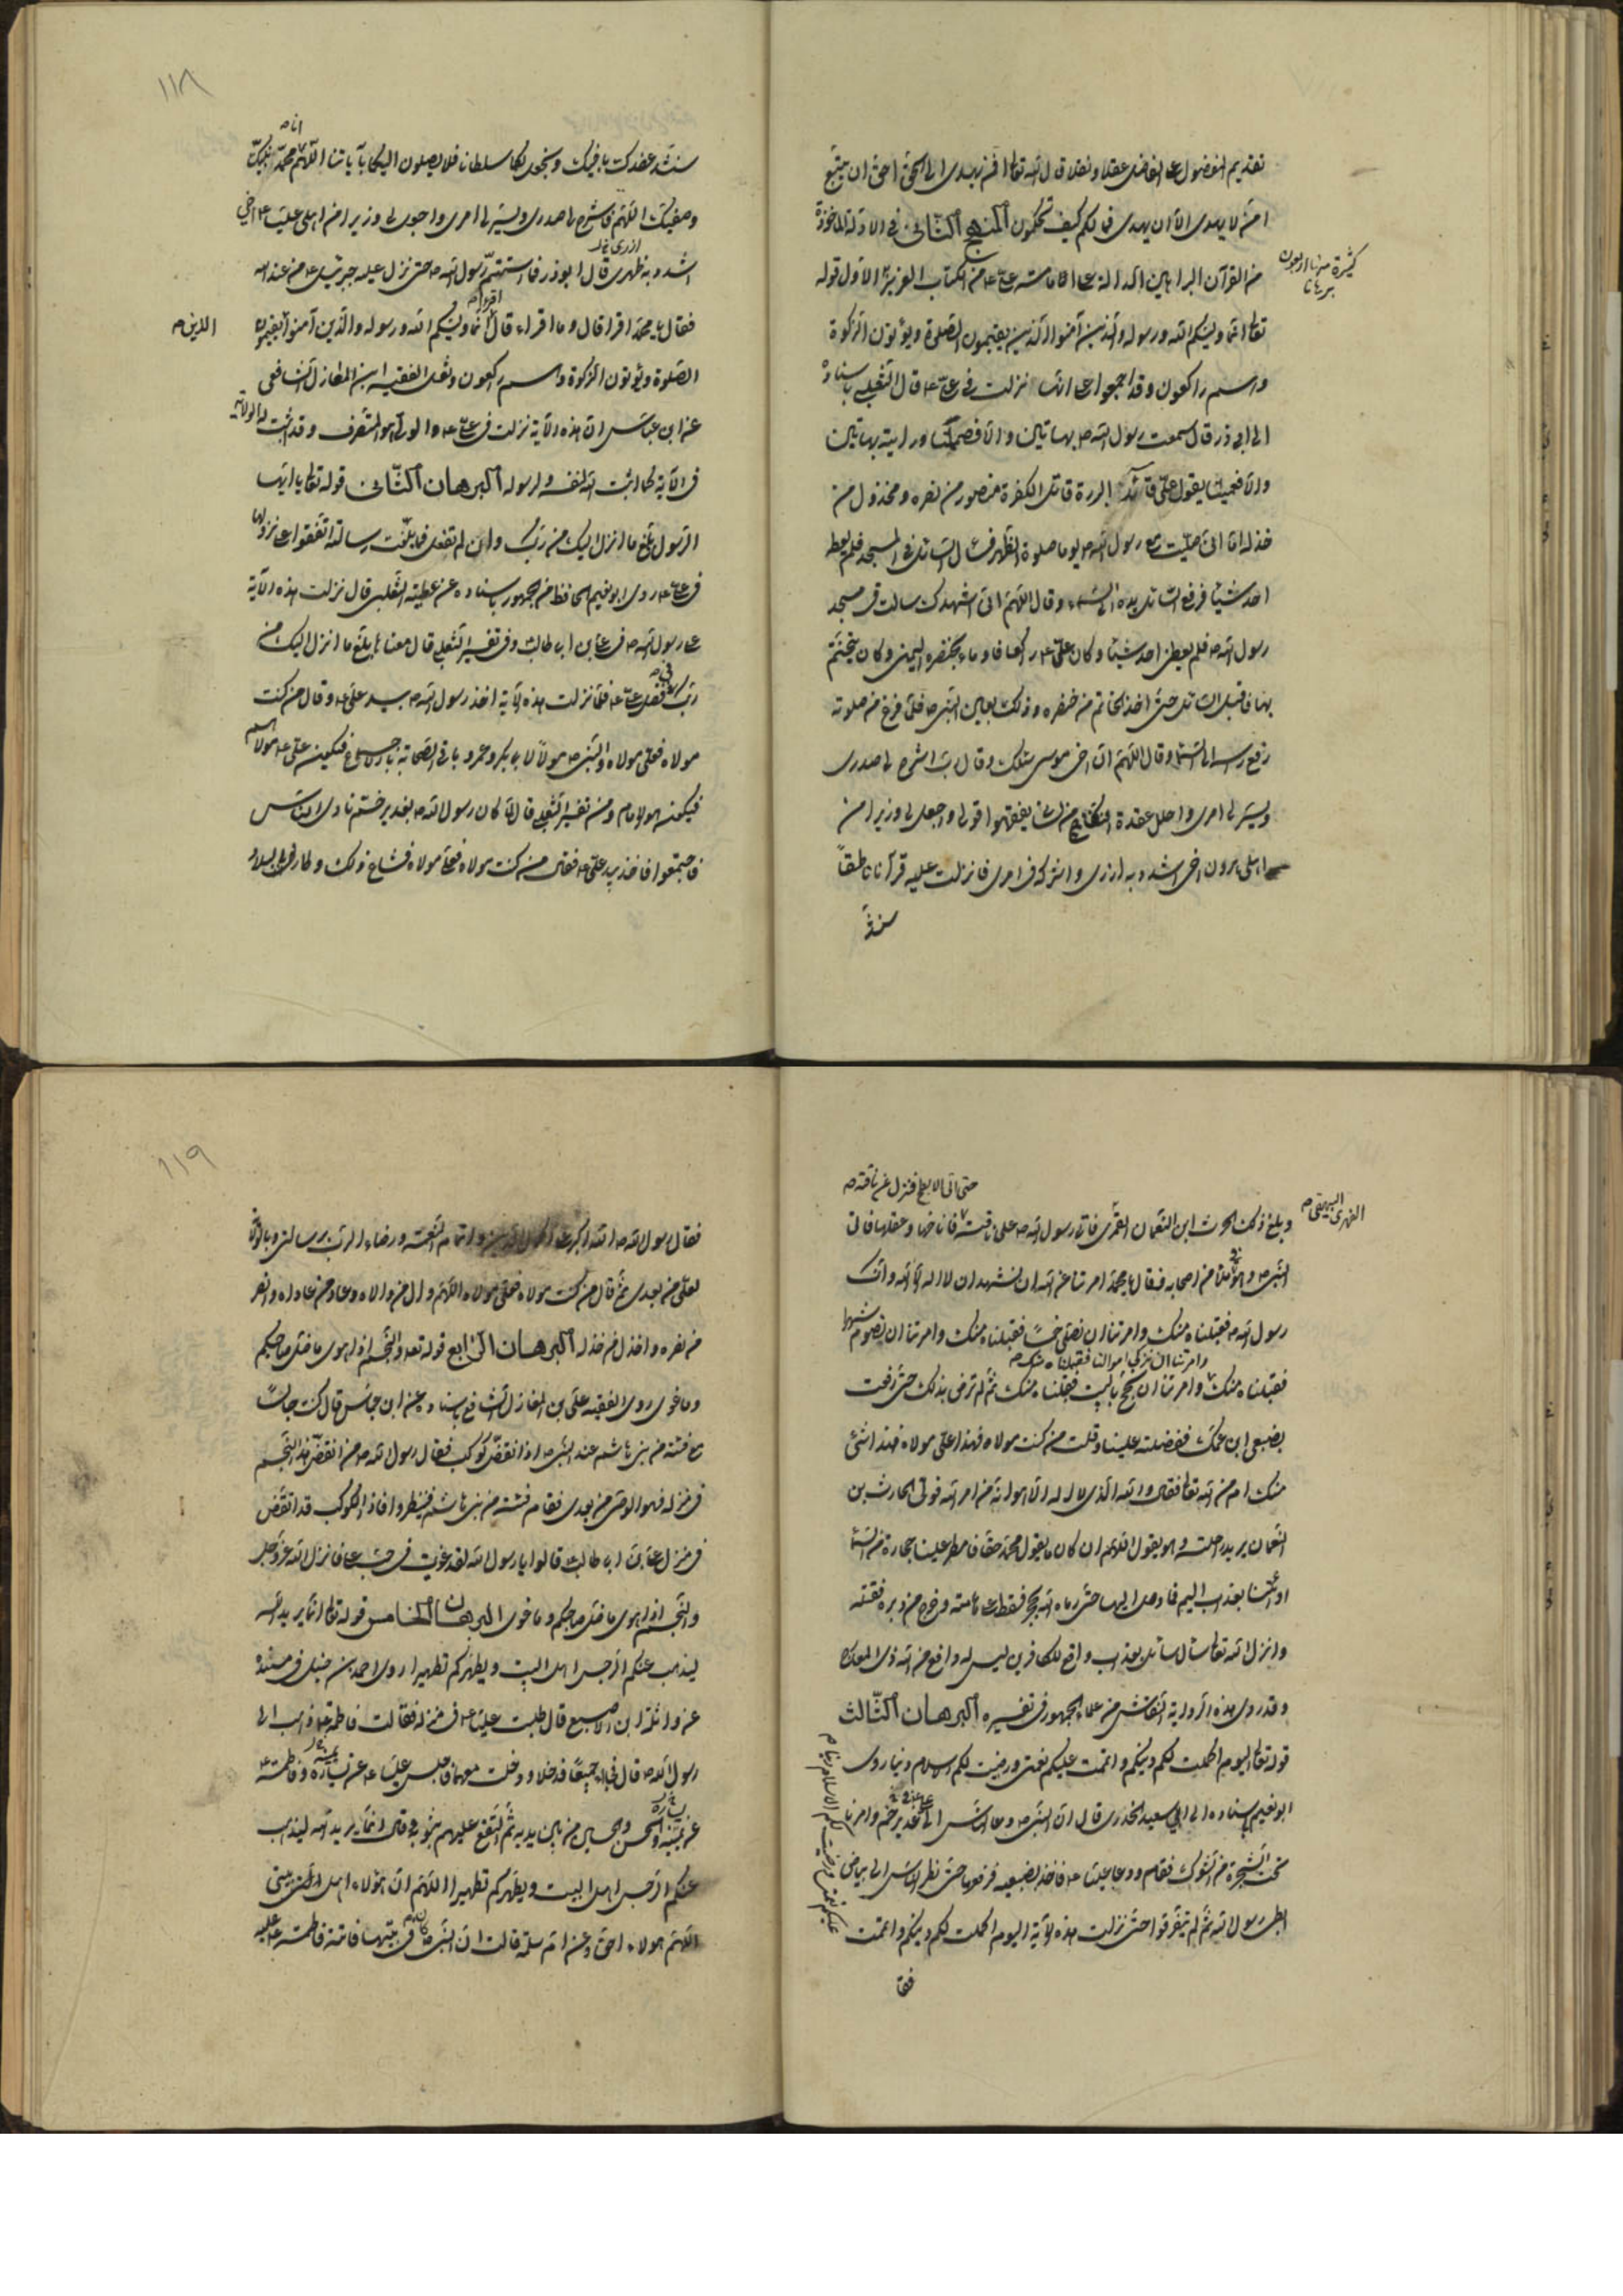 تقديم المفضول على الفاضل عقلا ونقلا قال الله تعالى افمن يهدى الى الحق احق ان يتبع
امّن لا يهدى الا ان يهدى فما لكم كيف تحكمون المنهج الثانى فى الادلة المأخوذة
من القرآن البراهين الدالة على امامته ع من الكتاب العزيز الاول قوله
كثيرة
اربعون
برهانا
تعالى انما وليكم الله ورسوله والذين آمنوا الذين يقيمون الصلوة ويؤتون الزكوة
وهم راكعون وقد اجمعوا على انها نزلت فى على ع قال الثعلبى باسناده
الى ابى ذر قال سمعت رسول الله ص بهاتين والا فصمتا ورايته بهاتين
والا فعميتا يقول على قائد البررة قاتل الكفرة منصور من نصره ومخذول من
خذله اما انى صليت مع رسول الله ص يوما صلوة الظهر فسال السائل فى المسجد فلم يعطه
احد شيئا فرفع السائل يده الى السماء وقال اللهم انى اشهدك سالت فى مسجد
رسول الله ص فلم يعطنى احد شيئا وكان على ع راكعا فاوماء بخنصره اليمنى وكان يتختم
بها فاقبل السائل حتى اخذ الخاتم من خنصره وذلك بعين النبى ص فلما فرغ من صلوته
رفع راسه الى السماء وقال اللهم ان اخى موسى سئلك وقال رب اشرح لى صدرى
ويسر لى امرى واحلل عقدة من لسانى يفقهوا قولى واجعل لى وزيرا من
اهلى هرون اخى اشدد به ازرى واشركه فى امرى فانزلت عليه قرآنا ناطقاً
سنشدّ
١١٨
سنشد عضدك باخيك ونجعل لكما سلطانا فلا يصلون اليكما بآياتنا اللهم انا محمد نبيك
وصفيك اللهم فاشرح لى صدرى ويسر لى امرى واجعل لى وزيرا من اهلى عليا ع اخى
اشدد به ظهرى قال ابو ذر فما استتم رسول الله ص حتى نزل عليه جبرئيل ع من عند الله
ازرى خ ل
فقال يا محمد اقرا قال وما اقراء قال اقرأ انما وليكم الله ورسوله والذين آمنوا يقيمون
الذين ص
الصلوة ويؤتون الزكوة وهم راكعون ونقل الفقيه ابن المغازلى الشافعى
عن ابن عباس ان هذه الآية نزلت فى على ع والولى هو المتصرف وقد اثبت له الولاية
فى الآية كما اثبت الله لنفسه ولرسوله البرهان الثانى قوله تعالى يا ايها
الرسول بلغ ما انزل اليك من ربك وان لم تفعل فما بلغت رسالته اتفقوا على نزولها
فى على ع روى ابو نعيم الحافظ من الجمهور باسناده عن عطية الثعلبى قال نزلت هذه الآية
على رسول الله ص فى على بن ابى طالب وفى تفسير الثعلبى قال معناه بلغ ما انزل اليك من
ربك فى فضل على ع فلما نزلت هذه الآية اخذ رسول الله ص بيد على ع وقال من كنت
مولاه فعلى مولاه والنبى ص مولا لابى بكر وعمر وباقى الصحابة بالاجماع فيكون على ع مولاهم
فيكون هو الامام ومن تفسير الثعلبى قال لما كان رسول الله ص بغدير خم نادى الناس
فاجتمعوا فاخذ بيد على ع فقال من كنت مولاه فعلى مولاه فشاع ذلك وطار فى البلاد
حتى اتى الابطح فنزل عن ناقته ص
وبلغ ذلك الحرث ابن النعمان الفهرى فاتى رسول الله ص على ناقته فاناخها وعقلها فاتى
النبى ص وهو فى ملأ من اصحابه فقال يا محمد امرتنا عن الله ان نشهد ان لا اله الا الله وانك
رسول الله ص فقبلناه منك وامرتنا ان نصلى خمسا فقبلناه منك وامرتنا ان نصوم شهرا
وامرتنا ان نزكى اموالنا فقبلناه منك ص
فقبلناه منك وامرتنا ان نحج البيت فقبلناه منك ثم لم ترض بذلك حتى رفعت
بضبعى ابن عمك ففضلته علينا وقلت من كنت مولاه فهذا على مولاه فهذا شئ
منك ام من الله تعالى فقال والله الذى لا اله الا هو انه من امر الله فولى الحارث بن
النعمان يريد راحلته وهو يقول اللهم ان كان ما يقول محمد حقا فامطر علينا حجارة من السماء
او ائتنا بعذاب اليم فما وصل اليها حتى رماه الله بحجر فسقط على هامته وخرج من دبره فقتله
وانزل الله تعالى سأل سائل بعذاب واقع للكافرين ليس له دافع من الله ذى المعارج
وقد روى هذه الرواية النقاش من علماء الجمهور فى تفسيره البرهان الثالث
قوله تعالى اليوم اكملت لكم دينكم واتممت عليكم نعمتى ورضيت لكم الاسلام دينا روى
ابو نعيم باسناده الى ابى سعيد الخدرى قال ان النبى ص دعا الناس الى على فى غدير خم وامر بما
تحت الشجرة من الشوك فقام ودعا عليا ع فاخذ بضبعيه فرفعهما حتى نظر الناس الى بياض
ابطى رسول الله ثم لم يتفرقوا حتى نزلت هذه الآية اليوم اكملت لكم دينكم واتممت
عليكم نعمتى ورضيت لكم الاسلام دينا ص
فقا
١١٩
فقال رسول الله ص الله اكبر على اكمال الدين واتمام النعمة ورضاء الرب برسالتى وبالولاية
لعلى من بعدى ثم قال من كنت مولاه فعلى مولاه اللهم وال من والاه وعاد من عاداه وانصر
من نصره واخذل من خذله البرهان الرابع قوله تعالى والنجم اذا هوى ما ضل صاحبكم
وما غوى روى الفقيه على بن المغازلى الشافعى باسناده عن ابن عباس قال كنت جالساً
مع فتية من بنى هاشم عند النبى ص اذا انقض كوكب فقال رسول الله ص من انقض هذا النجم
فى منزله فهو الوصى من بعدى فقام فتية من بنى هاشم فينظروا فاذا الكوكب قد انقض
فى منزل على بن ابى طالب قالوا يا رسول الله لقد غويت فى حب على فانزل الله عز وجل
والنجم اذا هوى ما ضل صاحبكم وما غوى البرهان الخامس قوله تعالى انما يريد الله
ليذهب عنكم الرجس اهل البيت ويطهركم تطهيرا روى احمد بن حنبل فى مسنده
عن واثلة ابن الاصقع قال طلبت عليا ع فى منزله فقالت فاطمة ع ذهب الى
رسول الله ص قال فجاءا جميعا فدخلا ودخلت معهما فاجلس عليا ع عن يساره وفاطمة ع
عن يمينه والحسن والحسين بين يديه ثم التفع عليهم بثوبه وقال انما يريد الله ليذهب
عنكم الرجس اهل البيت ويطهركم تطهيرا اللهم ان هؤلاء اهل بيتى
اللهم هولاء احق وعن ام سلمة قالت ان النبى ص كان فى بيتها فاتته فاطمة ع